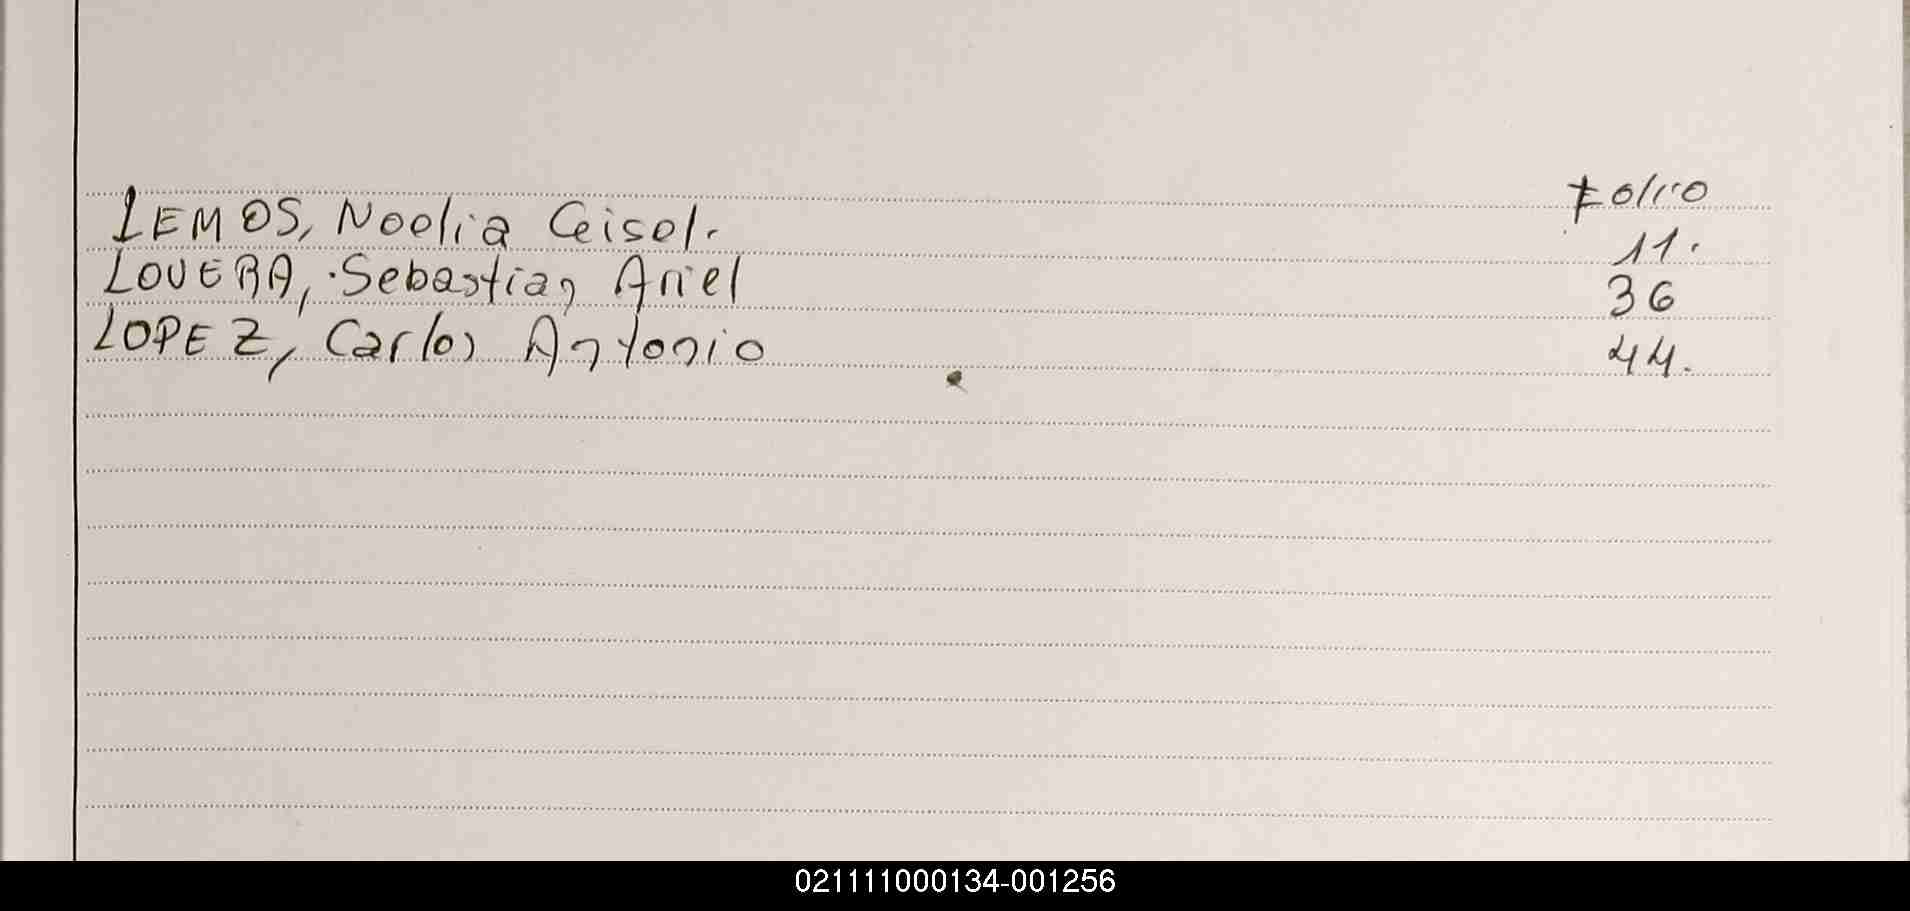 Folio
LEMOS, Noelia Geisel. 11.
LOVERA, Sebastian Ariel 36
LOPEZ, Carlos Antonio 44.
021111000134-001256